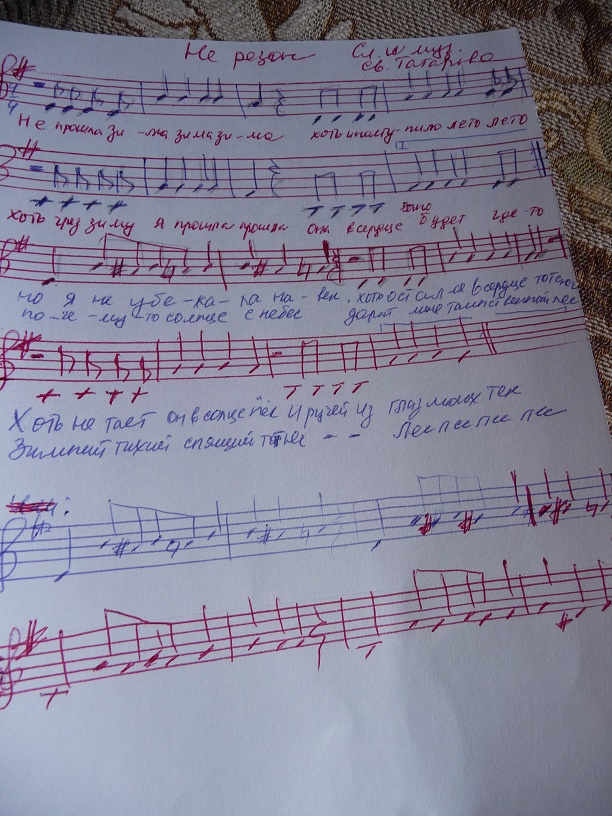 Не резон
Сл. и муз.
Св. Татарова
Не прошла зи -ма зима зи-ма хоть и насту-пило лето лето
12
Хоть чрез зиму Я прошла прошла Она в сердце будет где-то
но я не убе-жа-ла на-век. хоть остался в сердце тот
по-че-му-то солнце с небес дарит мне таинственный лес
Хоть не тает он в солнцепёк И ручей из глаз моих тек
Зимний тихий спящий -- Лес лес лес лес